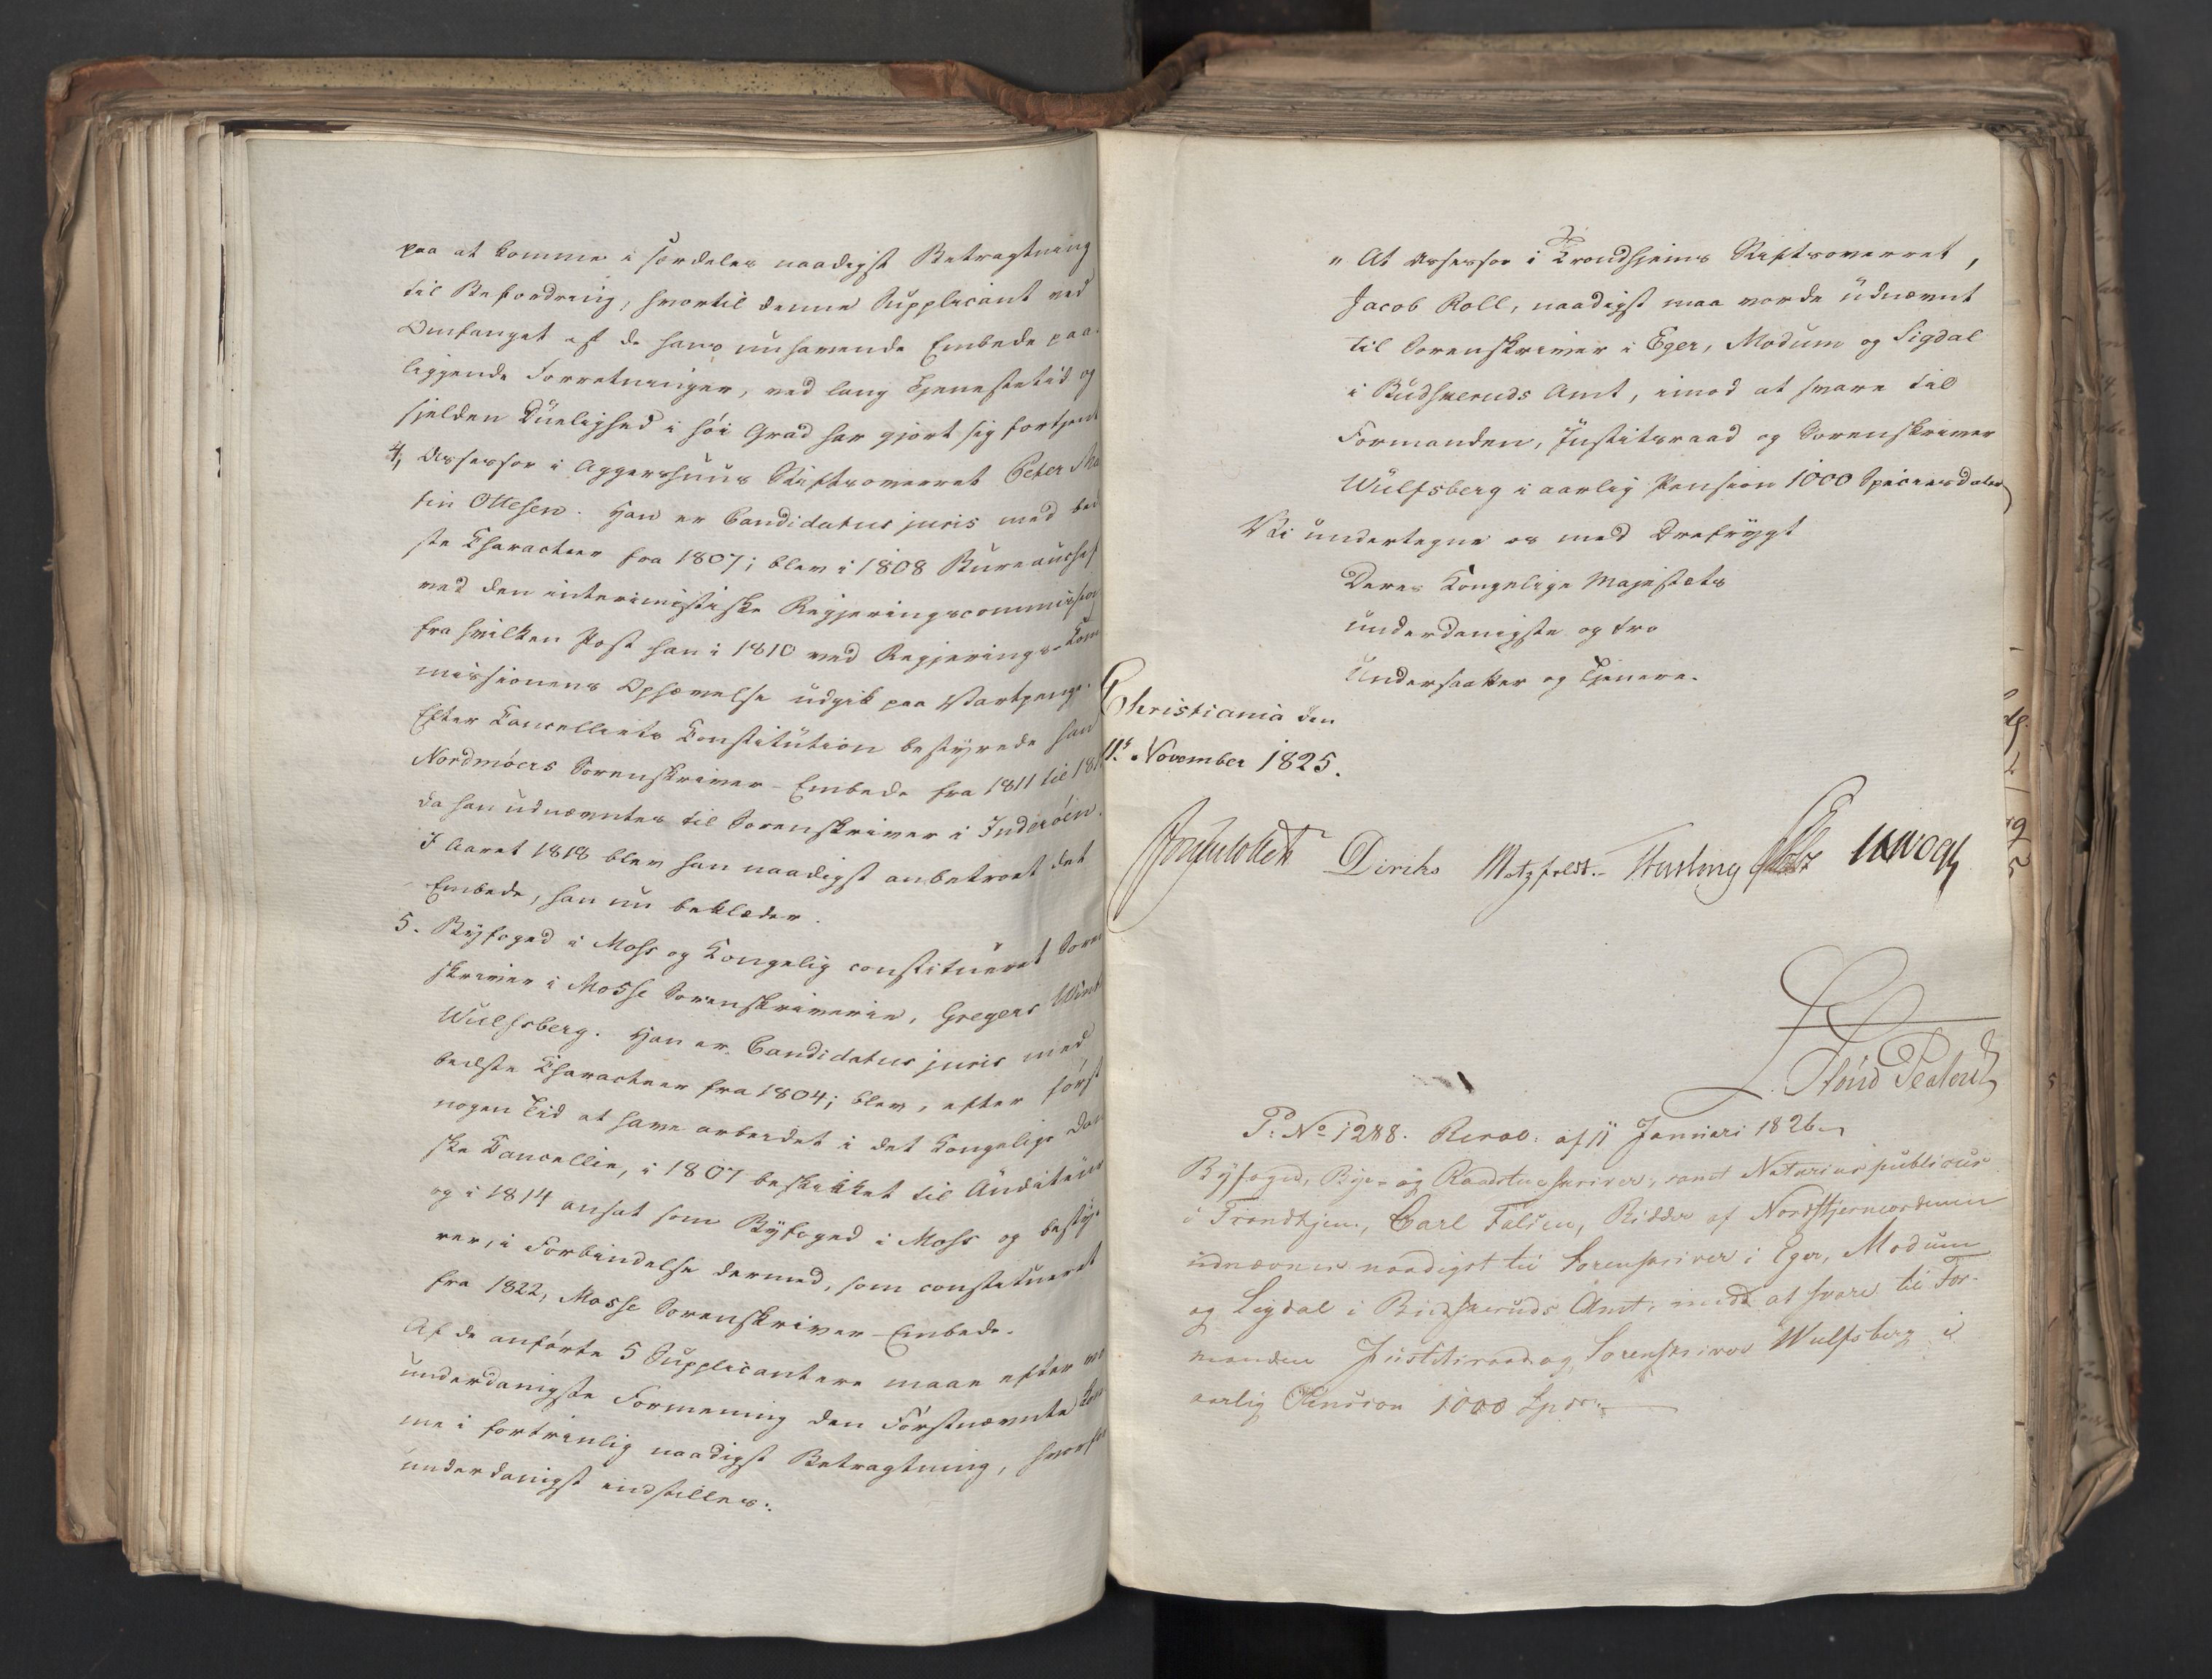 paa at komme i særdeles naadigst Betragtning
til Befordring, hvortil denne Supplicant ved
Omfanget af de hans nuhavende Embede paa-
liggende Forretninger, ved lang Tjenestetid og
sjelden Duelighed i høi Grad har gjort sig fortjent
4, Assessor i Aggershuus Stiftsoverret Peter
tin Ottesen. Han er Candidatus juris med bed
ste Characteer fra 1807; blev i 1808 Bureauchef
ved den interimistiske Regjeringscommission
fra hvilken Post han i 1810 ved Regjerings-Com
missionens Ophævelse udgik paa Vartpenge.
Efter Cancelliets Constitution bestyrede han
Nordmøers Sorenskriver-Embede fra 1811 til 181
da han udnævntes til Sorenskriver i Inderøen.
I Aaret 1818 blev han naadigst anbetroet det
Embede, han nu beklæder.
5. Byfoged i Moss og Kongelig constitueret Soren
skriver i Mosse Sorenskriverie, Gregers Wint
Wulfsberg. Han er Candidatus juris med
bedste Characteer fra 1804; blev, efter først
nogen Tid at have arbeidet i det Kongelige Dan
ske Cancellie, i 1807 beskikket til Auditeur
og i 1814 ansat som Byfoged i Moss og besty-
rer, i Forbindelse dermed, som constitueret
fra 1822, Mosse Sorenskriver-Embede.
Af de anførte 5 Supplicantere maae efter vor
underdanigste Formening den Førstnævnte kom
me i fortrinlig naadigst Betragtning, hvorfor
underdanigst indstilles:
"At Assessor i Trondhjems Stiftsoverret,
Jacob Roll, naadigst maa vorde udnævnt
til Sorenskriver i Eger, Modum og Sigdal
i Budskeruds Amt, imod at svare til
Formanden, Justitsraad og Sorenskriver
Wulfsberg i aarlig Pension 1000 Speciesdaler
Vi undertegne os med Ærefrygt
Deres Kongelige Majestæts
underdanigste og tro
Undersaatter og Tjenere.
Christiania den
11t November 1825.
Diriks Motzfeldt. Treschow
P: No 1288. Resol: af 11 Januari 1826
Byfoged, Bye- og Raadstueskriver, samt Notarius publicus
i Trondhjem, Carl Falsen, Ridder af Nordstjerneordenen
udnævnes naadigst til Sorenskriver i Eger, Modum
og Sigdal i Budskeruds Amt, imod at svare til For-
manden Justitsraad og Sorenskriver Wulfsberg i
aarlig Pension 1000 Spdr.